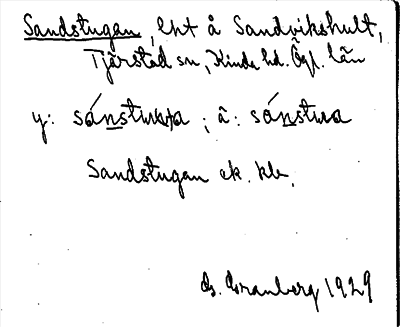 Sandstugan, lht å Sandvikshult,
Tjärstad sn, Kinda hd. Ögl. län
y: sánstuka ; ä: sánstua
Sandstugan ek. kb.
G. Granberg 1929